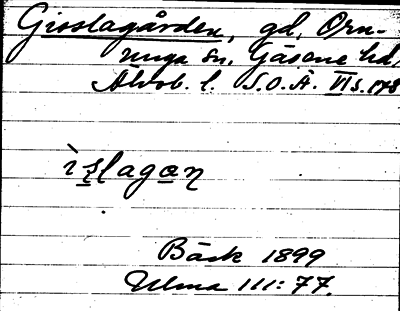 Gisslagården, gd, Orn-
unga sn, Gäsene hd,
Älvsb. l. S.O.Ä. VI s. 178
ìslagan
Bäck 1899
Ulma 111:77.